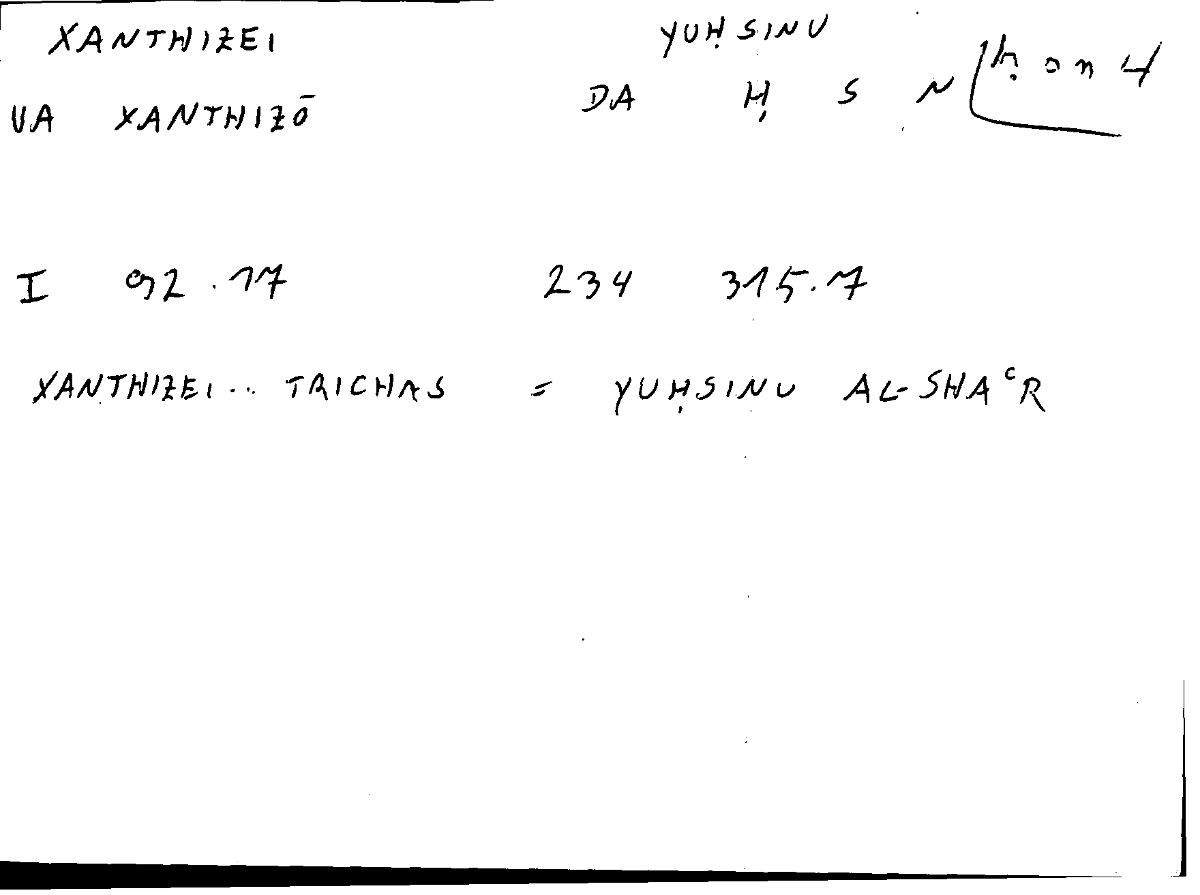 XANTHIZEI YUḤSINU
VA XANTHIZŌ DA Ḥ S N ḥ s n 4
I 92.17 234 315.7
XANTHIZEI... TRICHAS = YUḤSINU AL-SHAᶜR